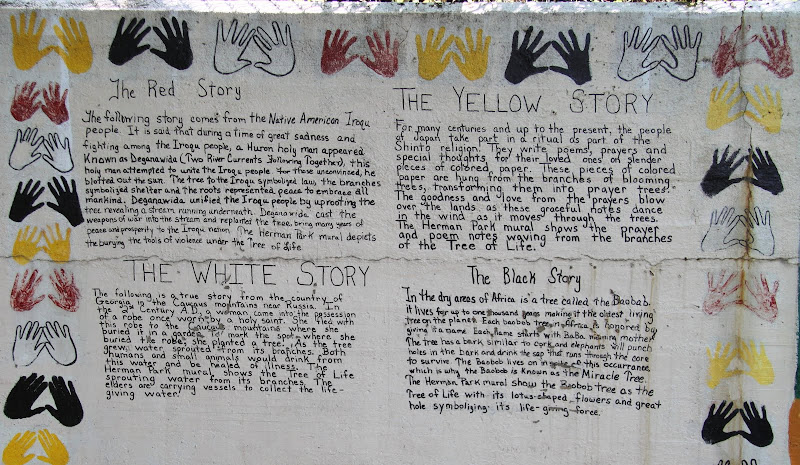 The Red Story
The following story comes from the Native American Iroqu
people. It is said that during a time of great sadness and
fighting among the Iroqu people, a Huron holy man appeared
Known as Deganawida (Two River Currents Following Together), this
holy man attempted to unite the Iroqu people. For those unconvinced, he
blotted out the sun. The tree to the Iroqu symbolized law, the branches
symbolized shelter and the roots represented, peace to embrace all
mankind. Deganawida unified the Iroqu people by uprooting the
tree revealing a stream running underneath. Deganawide cast the
weapons of war into the stream and replanted the tree, bring many years of
peace and prosperity to the Iroqu nation. The Herman Park mural depicts
the burying the tools of violence under the Tree of Life
THE YELLOW STORY
For many centuries and up to the present, the people
of Japan take part in a ritual as part of the
Shinto religion. They write poems, prayers and
special thoughts, for their loved ones on slender
pieces of colored paper. These pieces of colored
paper are hung from the branches of blooming
trees, transforming them into prayer trees.
The goodness and love from the prayers blow
over the lands as these graceful notes dance
in the wind as it moves through the trees.
The Herman Park mural shows the prayer
and poem notes waving from the branches
of the Tree of Life.
THE WHITE STORY
The following is a true story from the country of
Georgia in the Caucaus mountains near Russia. In
the 2nd Century A.D. a woman came into the possession
of a robe once worn by a holy saint. She fled with
this robe to the Caucaus mountains where she
buried it in a garden. To mark the spot where she
buried the robe, she planted a tree. As the tree
grew, water sprouted from its branches. Both
humans and small animals would drink from
this water and be healed of illness. The
Herman Park mural shows the Tree of Life
sprouting water from its branches. The
elders are carrying vessels to collect the life-
giving water.
The Black Story
In the dry areas of Africa is a tree called the Baobab.
it lives for up to one thousand years making it the oldest living
tree on the planet. Each baobab tree in africa is honored by
giving it a name. Each name starts with BaBa meaning mother
The tree has a bark similar to cork and elephants will punch
holes in the bark and drink the sap that runs through the core
to survive. The Baobab lives on in spite of this occurrance
which is why the Baobab is known as the Miracle Tree.
The Herman Park mural show the Baobab tree as the
Tree of Life with its lotus-shaped flowers and great
hole symbolizing its life-giving force.